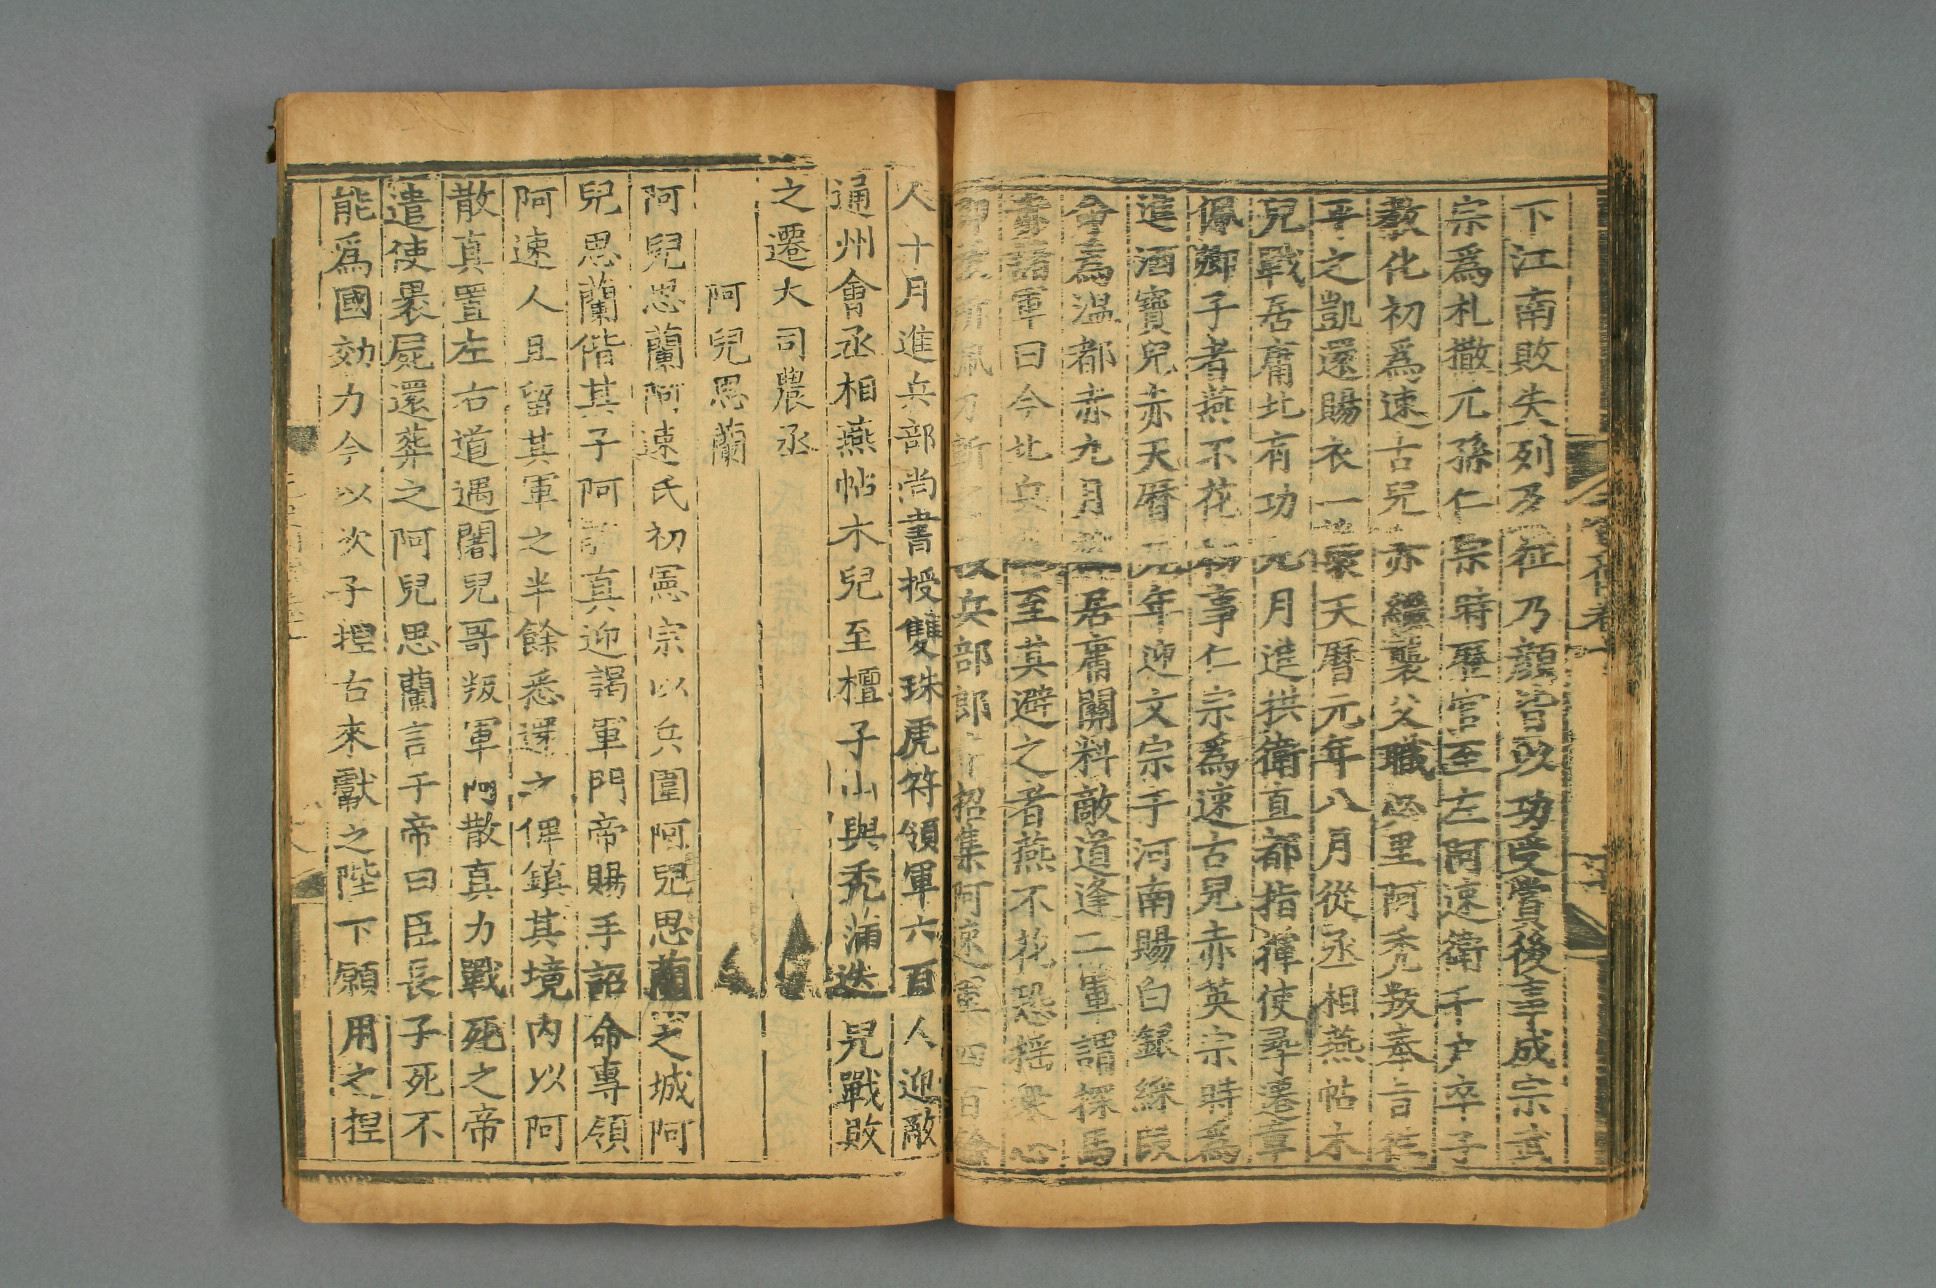 下江南敗失列及征乃顔皆以功受賞後事成宗武
宗爲札撒兀孫仁宗時歷官至左阿速衛千户卒子
教化初爲速古兒赤繼襲父職必里阿秃叛奉旨往
平之凱還賜衣一襲天曆元年八月從丞相燕帖木
兒戰居庸北有功九月進拱衛直都指揮使尋遷章
佩卿子者燕不花初事仁宗爲速古兒赤英宗時爲
進酒寶兒赤天曆元年迎文宗于河南賜白銀綵段
命爲温都赤九月 居庸關料敵道逢二軍謂探馬
赤諸軍曰今北兵 至其避之者燕不花恐摇衆心
即 所佩刀斬 兵部郎 招集阿速軍四百餘
人十月進兵部尚書授雙珠虎符領軍六百人迎敵
通州會丞相燕帖木兒至檀子山與秃滿迭兒戰敗
之遷大司農丞
阿兒思蘭
阿兒思蘭阿速氏初憲宗以兵圍阿兒思蘭之城阿
兒思蘭偕其子阿散真迎謁軍門帝賜手詔命專領
阿速人且留其軍之半餘悉還之俾鎮其境内以阿
散真置左右道遇闍兒哥叛軍阿散真力戰死之帝
遣使裹屍還葬之阿兒思蘭言于帝曰臣長子死不
能爲國効力今以次子捏古來獻之陛下願用之捏